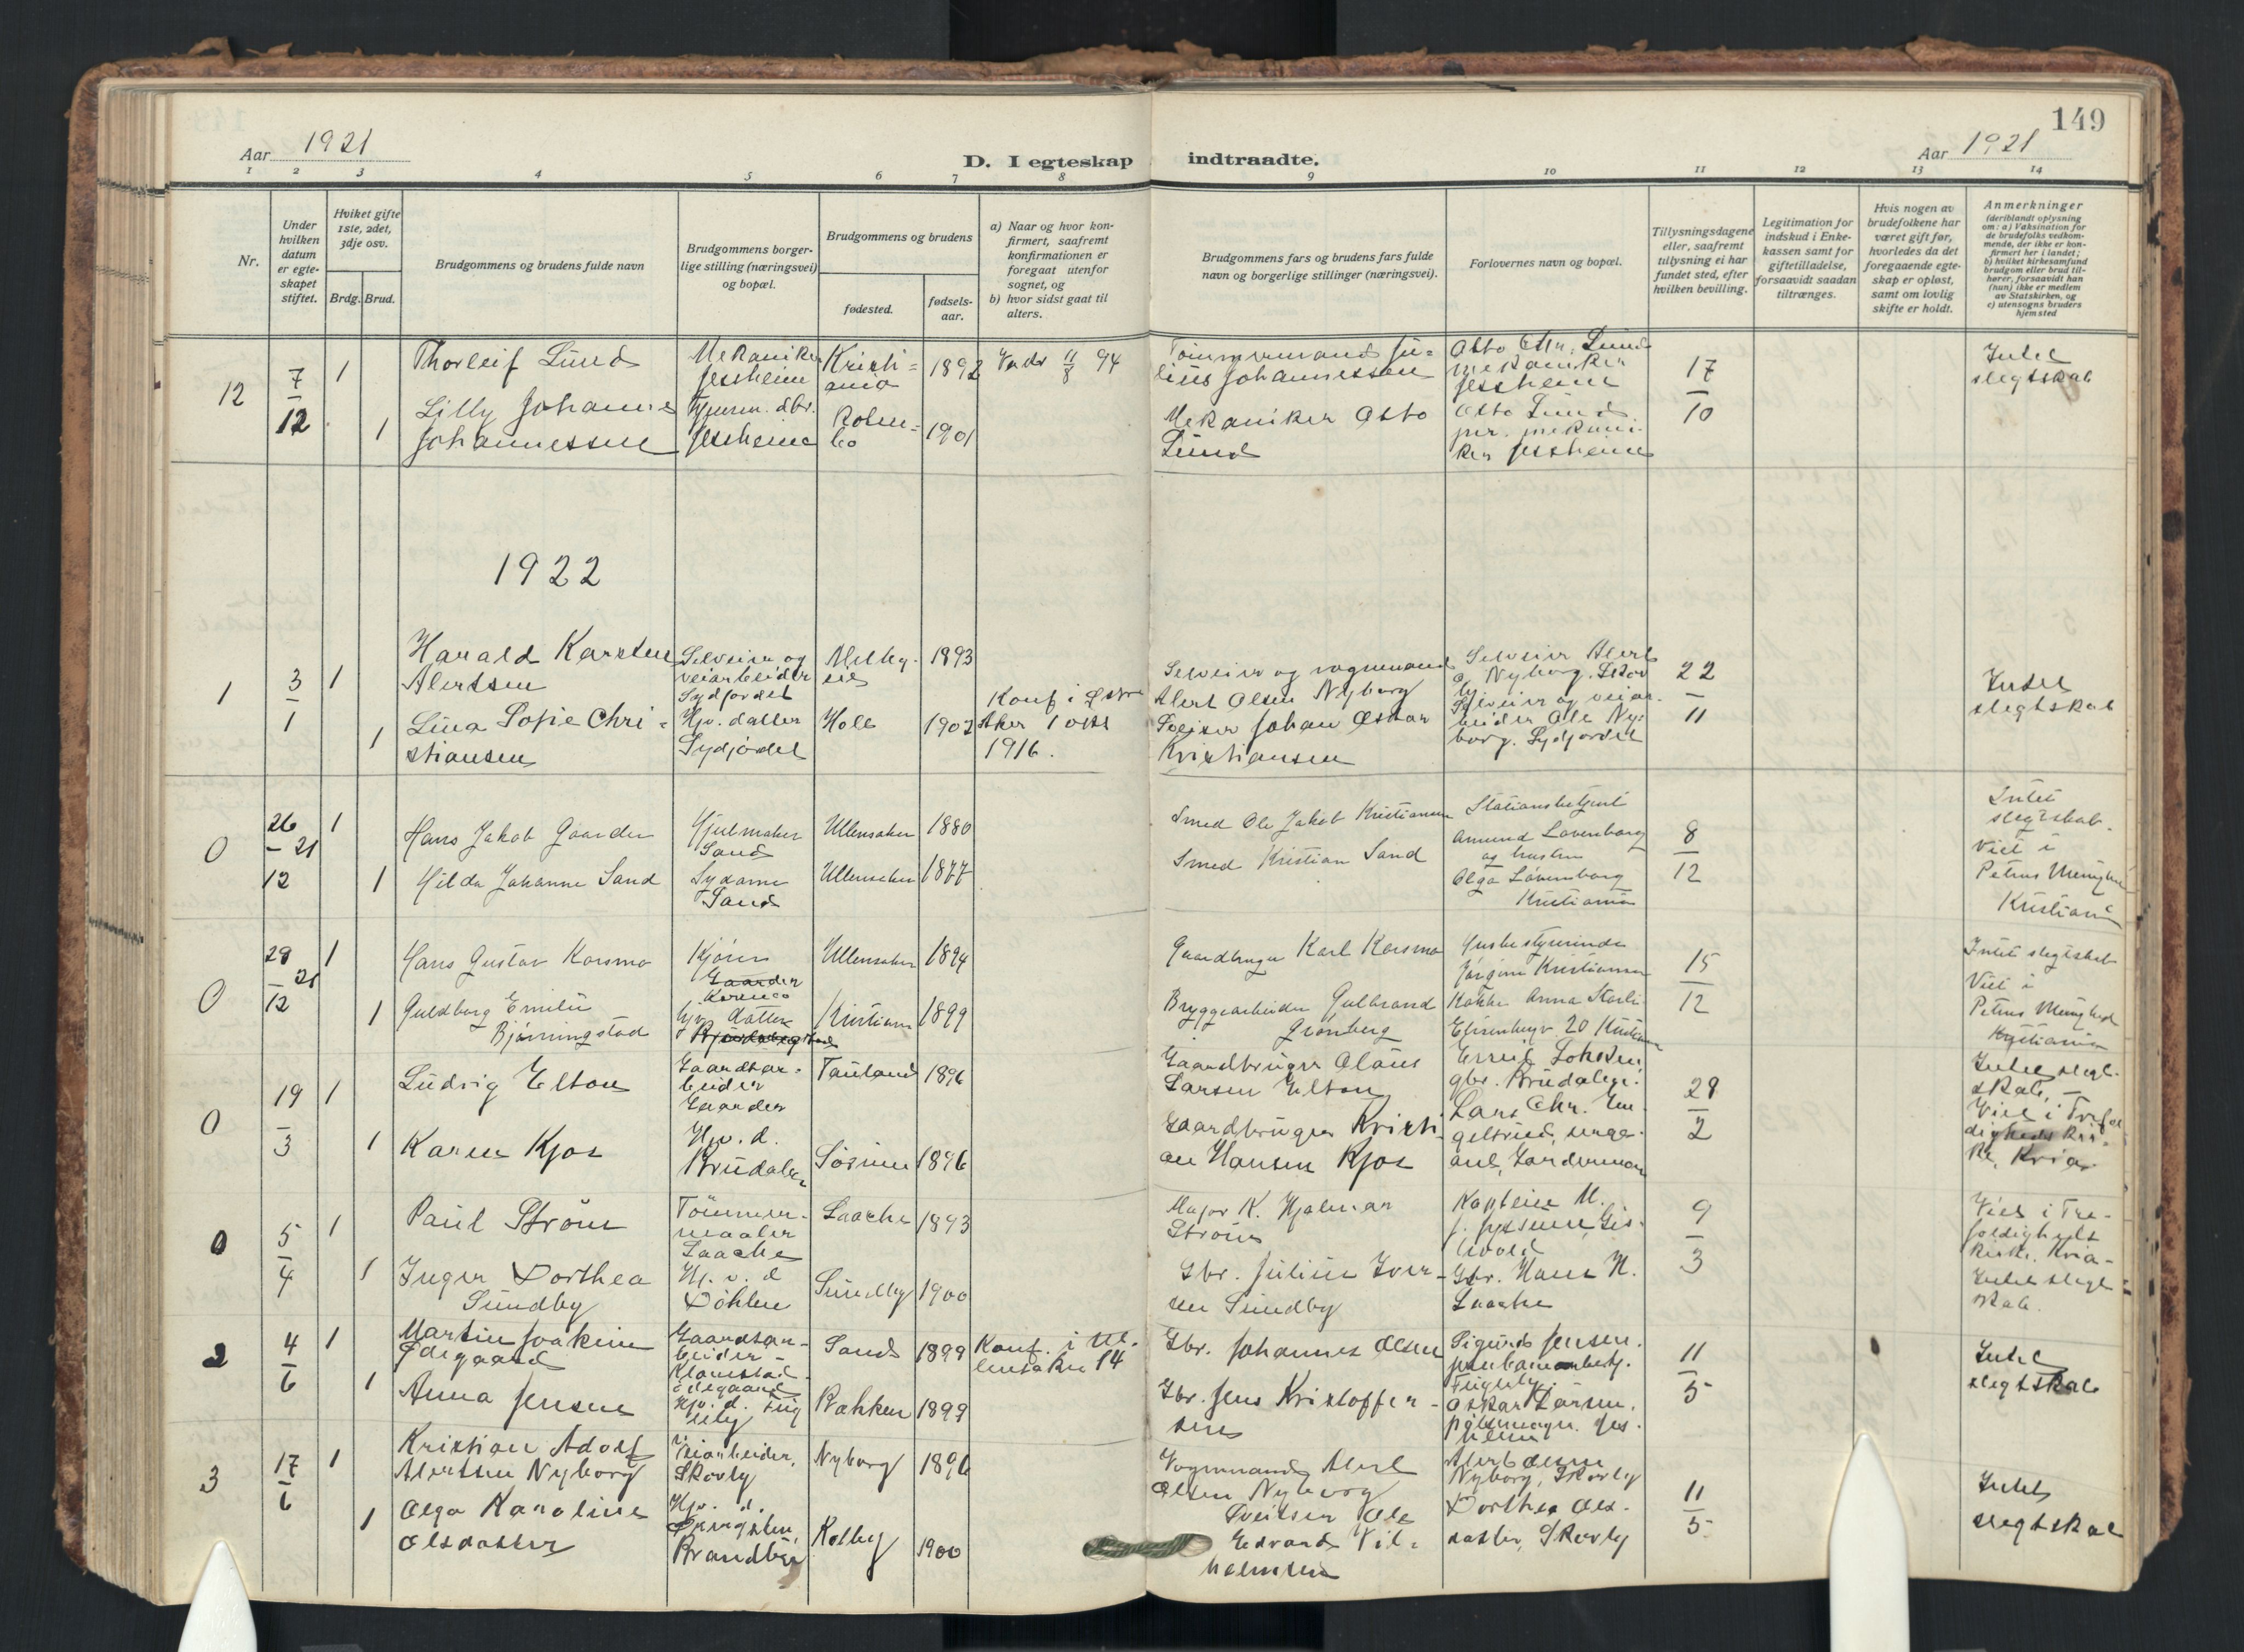 149
Aar 1921
D. I egteskap indtraadte.
Aar 1921
1 2 3 4 5 6 7 8 9 10 11 12 13 14
Nr.
Under hvilken datum er egteskapet stiftet.
Hviket gifte 1ste, 2det, 3dje osv.
Brdg. Brud.
Brudgommens og brudens fulde navn
Brudgommens borgerlige stilling (næringsvei) og bopæl.
Brudgommens og brudens
fødested.
fødselsaar.
a) Naar og hvor konfirmert, saafremt konfirmationen er foregaat utenfor sognet, og
b) hvor sidst gaat til alters.
Brudgommens fars og brudens fars fulde navn og borgerlige stillinger (næringsvei).
Forlovernes navn og bopæl.
Tillysningsdagene eller, saafremt tillysning ei har fundet sted, efter hvilken bevilling.
Legitimation for indskud i Enkekassen samt for giftetilladelse, forsaavidt saadan tiltrænges.
Hvis nogen av brudefolkene har været gift før, hvorledes da det foregaaende egteskap er opløst, samt om lovlig skifte er holdt.
Anmerkninger
(deriblandt oplysning om: a) Vaksination for de brudefolks vedkommende, der ikke er konfirmert her i landet; b) hvilket kirkesamfund brudgom eller brud tilhører, forsaavidt han (hun) ikke er medlem av Statskirken, og c) utensogns bruders hjemsted
12
7/12
1
Thorleif Lund
Mekaniker
Jessheim
Kristiania
1892
11/8 94
Tømmermand Julius Johannessen
Otto Chr. Lund
mekaniker
Jessheim
17/10
Intet
slegtskab
1
Lilly Johanne
Johannessen
Jessheim
1901
Mekaniker Otto
Lund
Otto Lund
jur. mekaniker Jessheim
1922
1
3/1
1
Harald Karsten
Alertsen
Selveier og
veiarbeider
Sydjordet
1893
Selveier og vognmand
Alert Olsen Nyborg
Selveier Alert
O. Nyborg, Skovly
22/11
Intet
slegtskab
1
Lina Sofie Christiansen
Hjv. datter
Sydjordet
Hole
1902
Konf i Østre
Aker 1 okt
1916.
Johan Oskar
Kristiansen
Selveier og veiarbeider Ole Nyborg. Sydjordet
0
26/12 - 21
1
Hans Jakob Gaarder
Hjulmaker
Sand
Ullensaker
1880
Smed Ole Jakob Kristiansen
Stationsbetjent
Amund Løvenborg
og hustru
8/12
Intet
slegtskab.
Viet i
Petrus Menighed
Kristiania
1
Hilda Johanne Sand
Sydame
Sand
Ullensaker
1877
Smed Kristian Sand
Olga Løvenborg
Kristiania
0
28/12 21
1
Hans Gustav Korsmo
Gaarder
Korsmo
Ullensaker
1894
Gaardbruger Karl Korsmo
Husbestyrerinde
Jørgine Kristiansen
15/12
Intet slegtskab
Viet i
Petrus Menighed
Kristiania
1
Guldborg Emilie
Bjørningstad
hjv. datter
Kristiania
1899
Bryggearbeider Gulbrand
Grønberg
Kokke Anna
20
0
19/3
1
Ludvig Elton
Gaardsarbeider
Gaarder
Tauland
1896
Gaardbruger Olaus
Larsen Elton
gbr. Brudalen.
28/2
Intet slegtskab. -
Viet i Trefoldighedskirke, Kria.
1
Karen Kjos
Hjv. d.
Brudalen
1896
Gaardbruger Kristian Hansen Kjos
Lars Chr. Engelsrud, sergeant, Gardermoen
0
5/4
1
Paul Strøm
Tømmermaaler
Laache
Laache
1893
Major K. Hjalmar
Strøm
Kaptein
9/3
Viet i Trefoldigheds
kirke, Kria -
Intet slegtskab.
1
Inger Dorthea
Sundby
Hj. v. d
Døhlen
Sundby
1900
Gbr. Julius Iversen Sundby
Gbr. Hans H.
Laache
2
4/6
1
Martin Joakim
Ødegaard
Gaardsarbeider -
Klomstad
ødegaard
Sand
1899
Konf. i Ullensaker 14
Gbr. Johannes Olsen
Sigurd Jensen.
jernbanearbeid.
Fuglely.
11/5
Intet
slegtskab
1
Anna Jensen
Hjv. d. Fuglely
Bakken
1899
Gbr. Jens Kristoffersen
Oskar Larsen,
pølsemager. Jessheim
3
17/6
1
Kristian Adolf
Alertsen Nyborg
Veiarbeider,
Skovly
Nyborg
1896
Vognmand Alert
Olsen Nyborg
Alert Olsen
Nyborg, Skovly
11/5
Intet
slegtskab
1
Olga Karoline
Olsdatter
Hjv. d.
Kolby
1900
Sveitser Ole
Edvard Vilhelmsen
Dorthea Olsdatter, Skovly